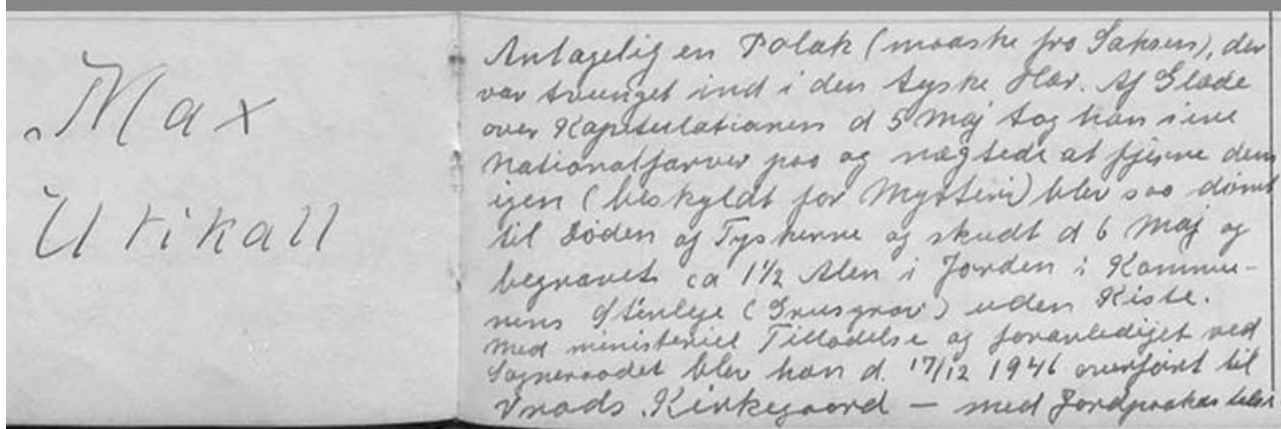 Max
Utikall
Antagelig en Polak (maaske fra Saksen), der
var tvunget ind i den tyske Hær. Af Glæde
over Kapitulationen d 5 Maj tog han sine
Nationalfarver paa og nægtede at fjerne dem
igen (beskyldt for Mytteri) blev saa dømt
til Døden af Tyskerne og skudt d 6 Maj og
begravet ca 1½ Alen i Jorden i Kommu-
nens Stenleje (Grusgrav) uden Kiste.
Med ministeriel Tilladelse og foranlediget ved
Sogneraadet blev han d. 17/12 1946 overført til
Vrads Kirkegaard — med Jordpaakastelse